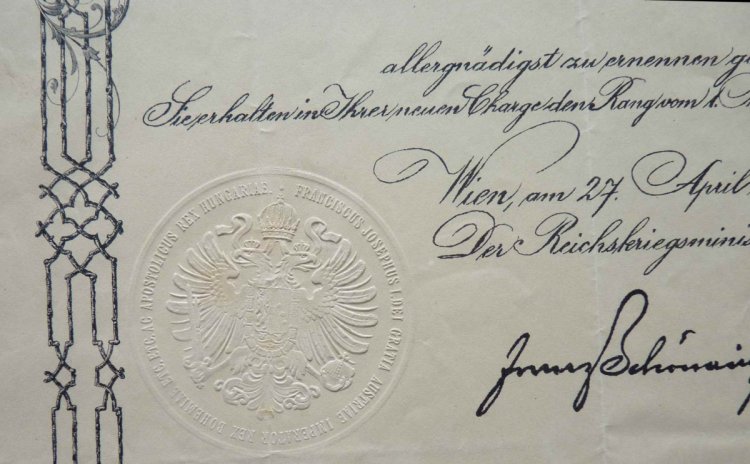 allergnädigst zu ernennen
Sie erhalten in Ihrer neuen Charge den Rang vom 1.
Wien, am 27. April
Der Reichskriegsminis
Franz Schönaic
FRANCISCUS JOSEPHUS I. DEI GRATIA AUSTRIAE IMPERATOR REX BOHEMIAE ETC. ETC. AC APOSTOLICUS REX HUNGARIAE.